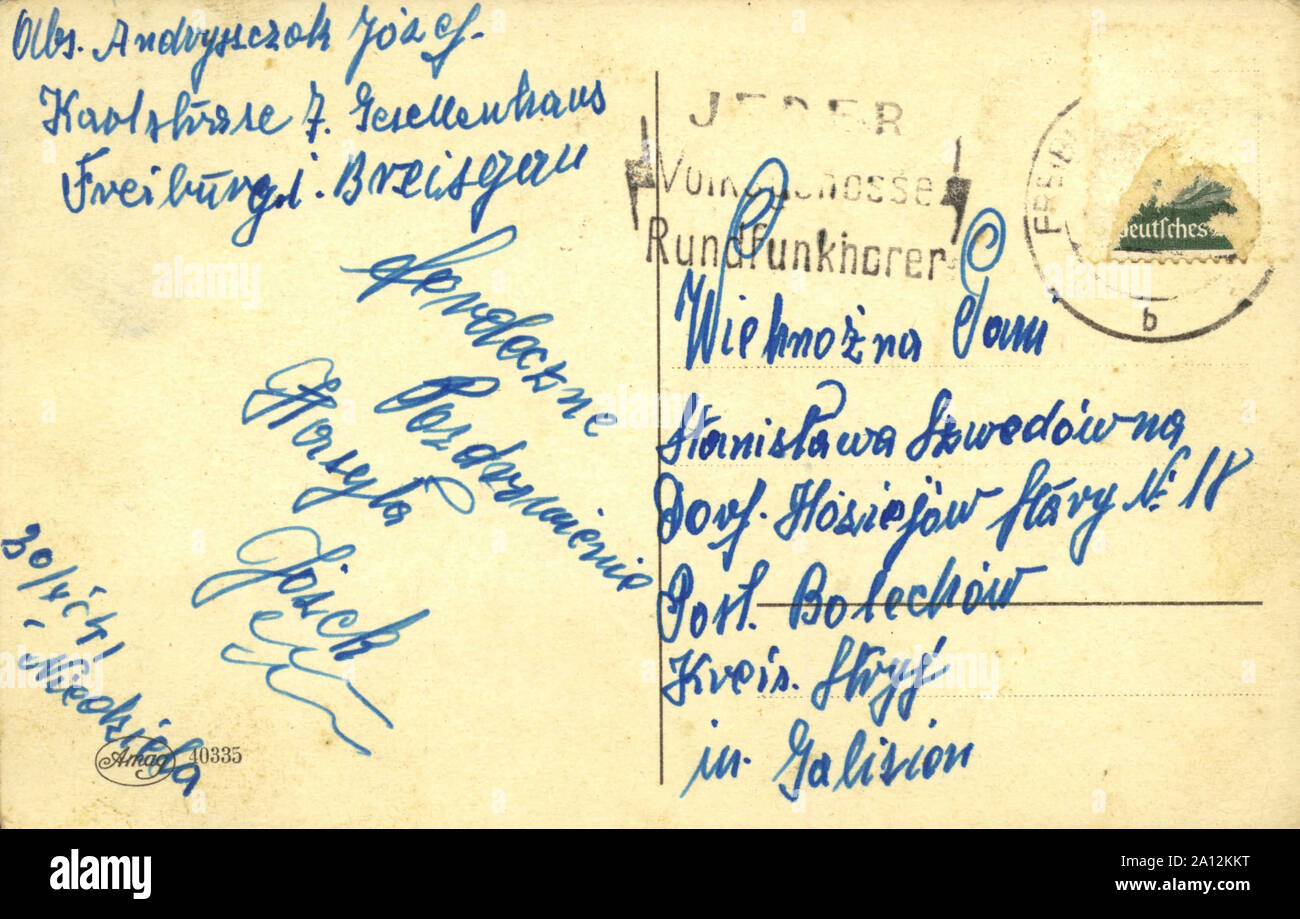 Abs. Andryszczak Józef.
Karlstrasse 7. Gesellenhaus
Freiburg i. Breisgau
Serdeczne
Pozdrowienia
Józek
30/XI 41
Niedziela
Amag 40335
JEDER
Volksgenosse
Rundfunkhörer
FREIB
b
Deutsches
Wielmożna Pani
Stanisława Szwedówna
Dorf. Hoziejów Stáry № 18
Post. Bolechów
Kreis. Stryj
in. Galizien
alamy
Image ID: 2A12KKT
www.alamy.com